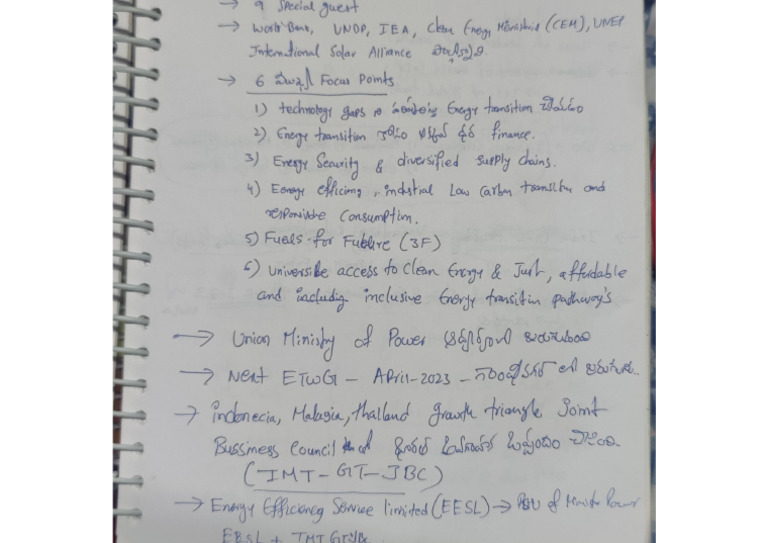 → 9 special guest
→ World Bank, UNDP, IEA, Clean Energy Ministrial (CEM), UNEP
International Solar Alliance
→ 6 ముఖ్య Focus Points
1) technology gaps Energy transition చేయడం
2) Energy transition కోసం తక్కువ ధర finance.
3) Energy Security & diversified supply chains.
4) Eenergy efficing, indstrial Low carbon transition and
responsible Consumption.
5) Fuels for Future (3F)
6) universile access to Clean Energy & Just, affudable
and including inclusive Energy transition pathway's
→ Union Ministry of Power ఆధ్వర్యంలో జరుగుతుంది
→ Next ETWG - APril-2023 - గాంధీనగర్ లో జరుగును..
→ indonecia, Malasia, thailand growth triangle Joint
Bussiness Council of ఒప్పందం
(IMT-GT-JBC)
→ Energy Efficiency Service limited (EESL) → PSU of Power
EESL +